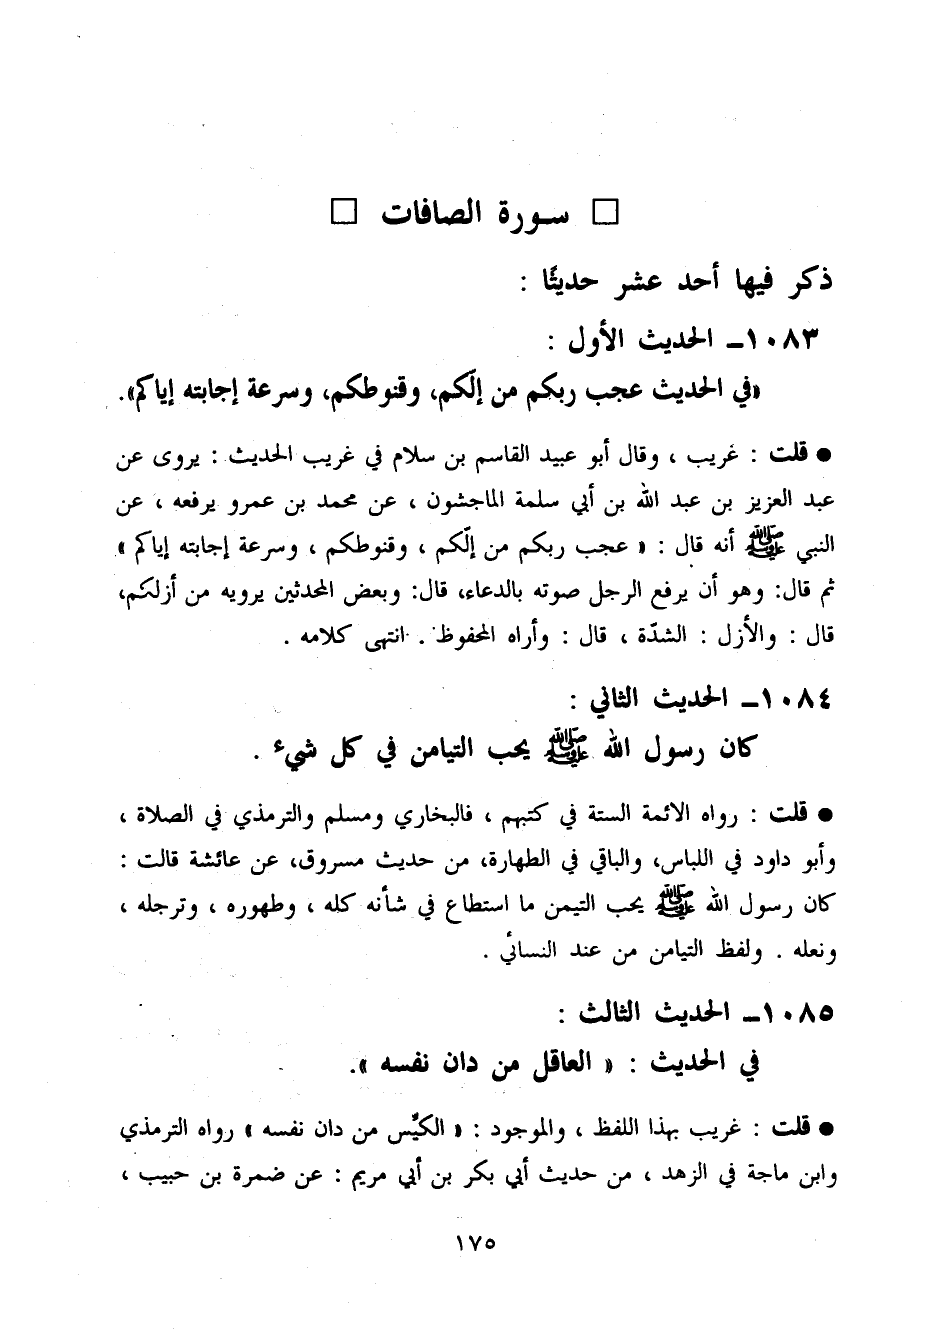 □ سورة الصافات □
ذكر فيها أحد عشر حديثًا :
١٠٨٣ـ الحديث الأول :
«في الحديث عجب ربكم من إلّكم، وقنوطكم، وسرعة إجابته إياكم».
● قلت : غريب ، وقال أبو عبيد القاسم بن سلام في غريب الحديث : يروى عن
عبد العزيز بن عبد الله بن أبي سلمة الماجشون ، عن محمد بن عمرو يرفعه ، عن
النبي ﷺ أنه قال : « عجب ربكم من إلّكم ، وقنوطكم ، وسرعة إجابته إياكم »
ثم قال: وهو أن يرفع الرجل صوته بالدعاء، قال: وبعض المحدثين يرويه من أزلكم،
قال : والأزل : الشدّة ، قال : وأراه المحفوظ . انتهى كلامه .
١٠٨٤ـ الحديث الثاني :
كان رسول الله ﷺ يحب التيامن في كل شيء .
● قلت : رواه الائمة الستة في كتبهم ، فالبخاري ومسلم والترمذي في الصلاة ،
وأبو داود في اللباس، والباقي في الطهارة، من حديث مسروق، عن عائشة قالت :
كان رسول الله ﷺ يحب التيمن ما استطاع في شأنه كله ، وطهوره ، وترجله ،
ونعله . ولفظ التيامن من عند النسائي .
١٠٨٥ـ الحديث الثالث :
في الحديث : « العاقل من دان نفسه ».
● قلت : غريب بهذا اللفظ ، والموجود : « الكيِّس من دان نفسه » رواه الترمذي
وابن ماجة في الزهد ، من حديث أبي بكر بن أبي مريم : عن ضمرة بن حبيب ،
١٧٥